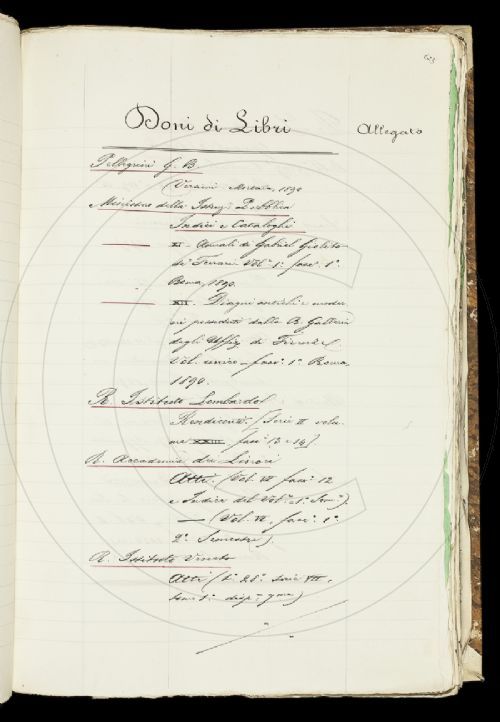 Doni di Libri
Allegato
Pellegrini G. B.
(Versione Morsolin, 1890
Ministero della Istruz. Pubblica
Indici e Cataloghi
XI - Annali di Gabriel Giolito
de Ferrari Vol. 1° fasc. 1°
Roma, 1890.
XII. Disegni antichi e moder
ni posseduti dalla R. Galleria
degli Uffizj di Firenze.
Vol. unico - fasc. 1° Roma
1890.
R. Istituto Lombardo
Rendiconti. (Serie II volu
me XXIII. fasc. 13 e 14)
R. Accademia dei Lincei
Atti. (Vol. VI fasc. 12
e Indice del Vol. 1° Sem.e).
— (Vol. VI, fasc. 1°
2° Semestre).
R. Istituto Veneto
Atti (t. 38° serie VII,
tomo 1° disp.